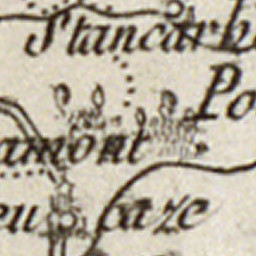 Stancarb
Po
amont
eu caze